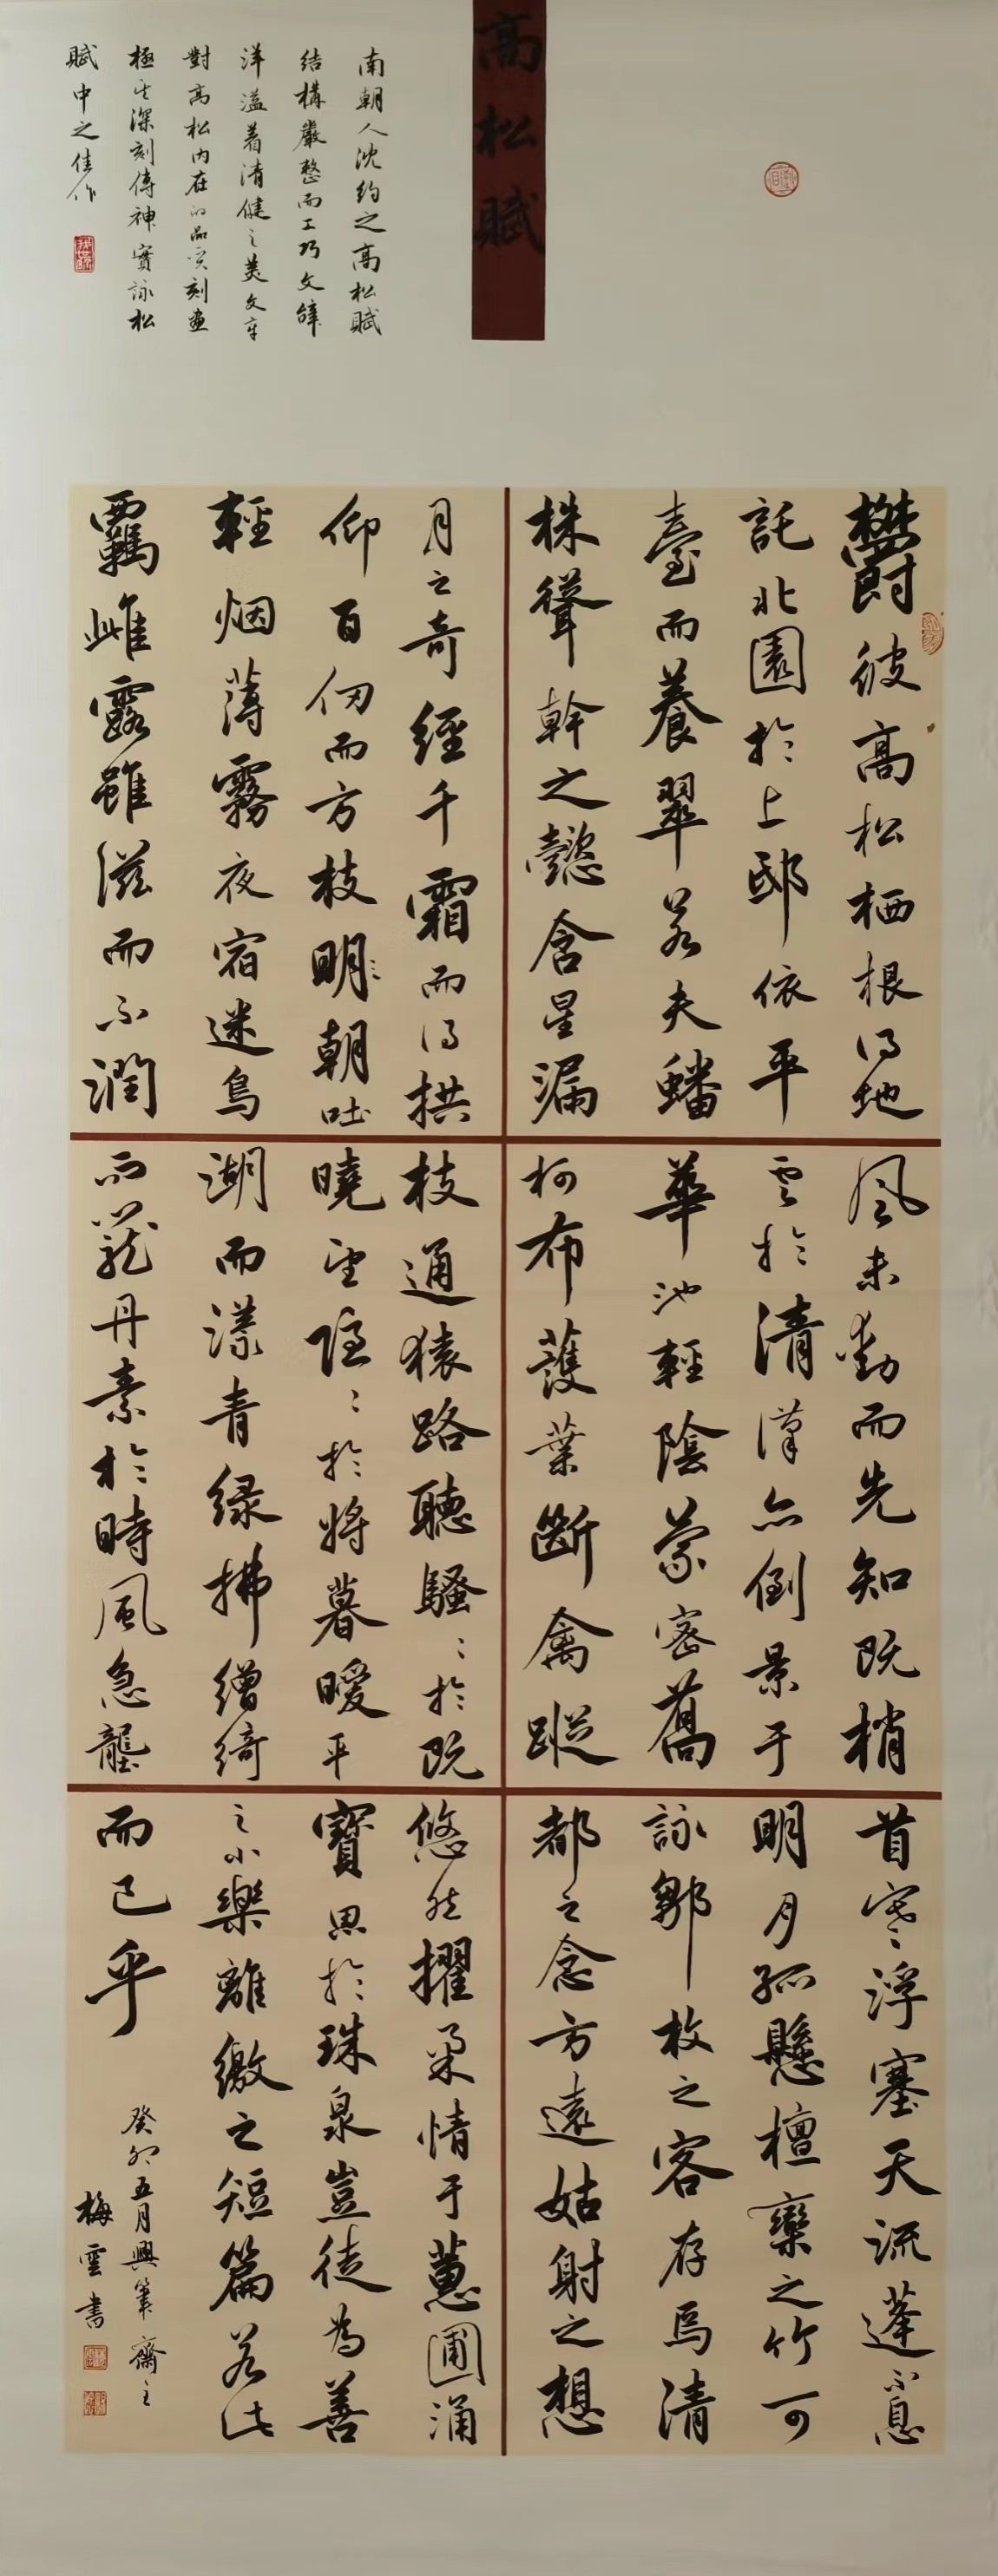 高松賦
南朝人沈約之高松賦
結構嚴整而工巧文辭
洋溢着清健之美文章
對高松內在的品質刻畫
極其深刻傳神實詠松
賦中之佳作
欝彼高松栖根得地
託北園於上邸依平
臺而養翠若夫蟠
株聳幹之懿含星漏
月之奇經千霜而得拱
仰百仞而方枝明〻朝吐
輕烟薄霧夜宿迷鳥
羈雌露雖滋而不潤
風未動而先知既梢
雲於清漢亦倒景于
華池輕陰蒙密喬
柯布護葉斷禽蹤
枝通猿路聽騷〻於既
曉望隱〻於將暮曖平
湖而漾青綠拂繒綺
而籠丹素於時風急壟
首寒浮塞天流蓬不息
明月孤懸檀欒之竹可
詠鄒枚之客存焉清
都之念方遠姑射之想
悠然擢柔情于蕙圃涌
寶思於珠泉豈徒為善
之小樂離繳之短篇若此
而已乎
癸卯五月興筆齋主
梅雲書